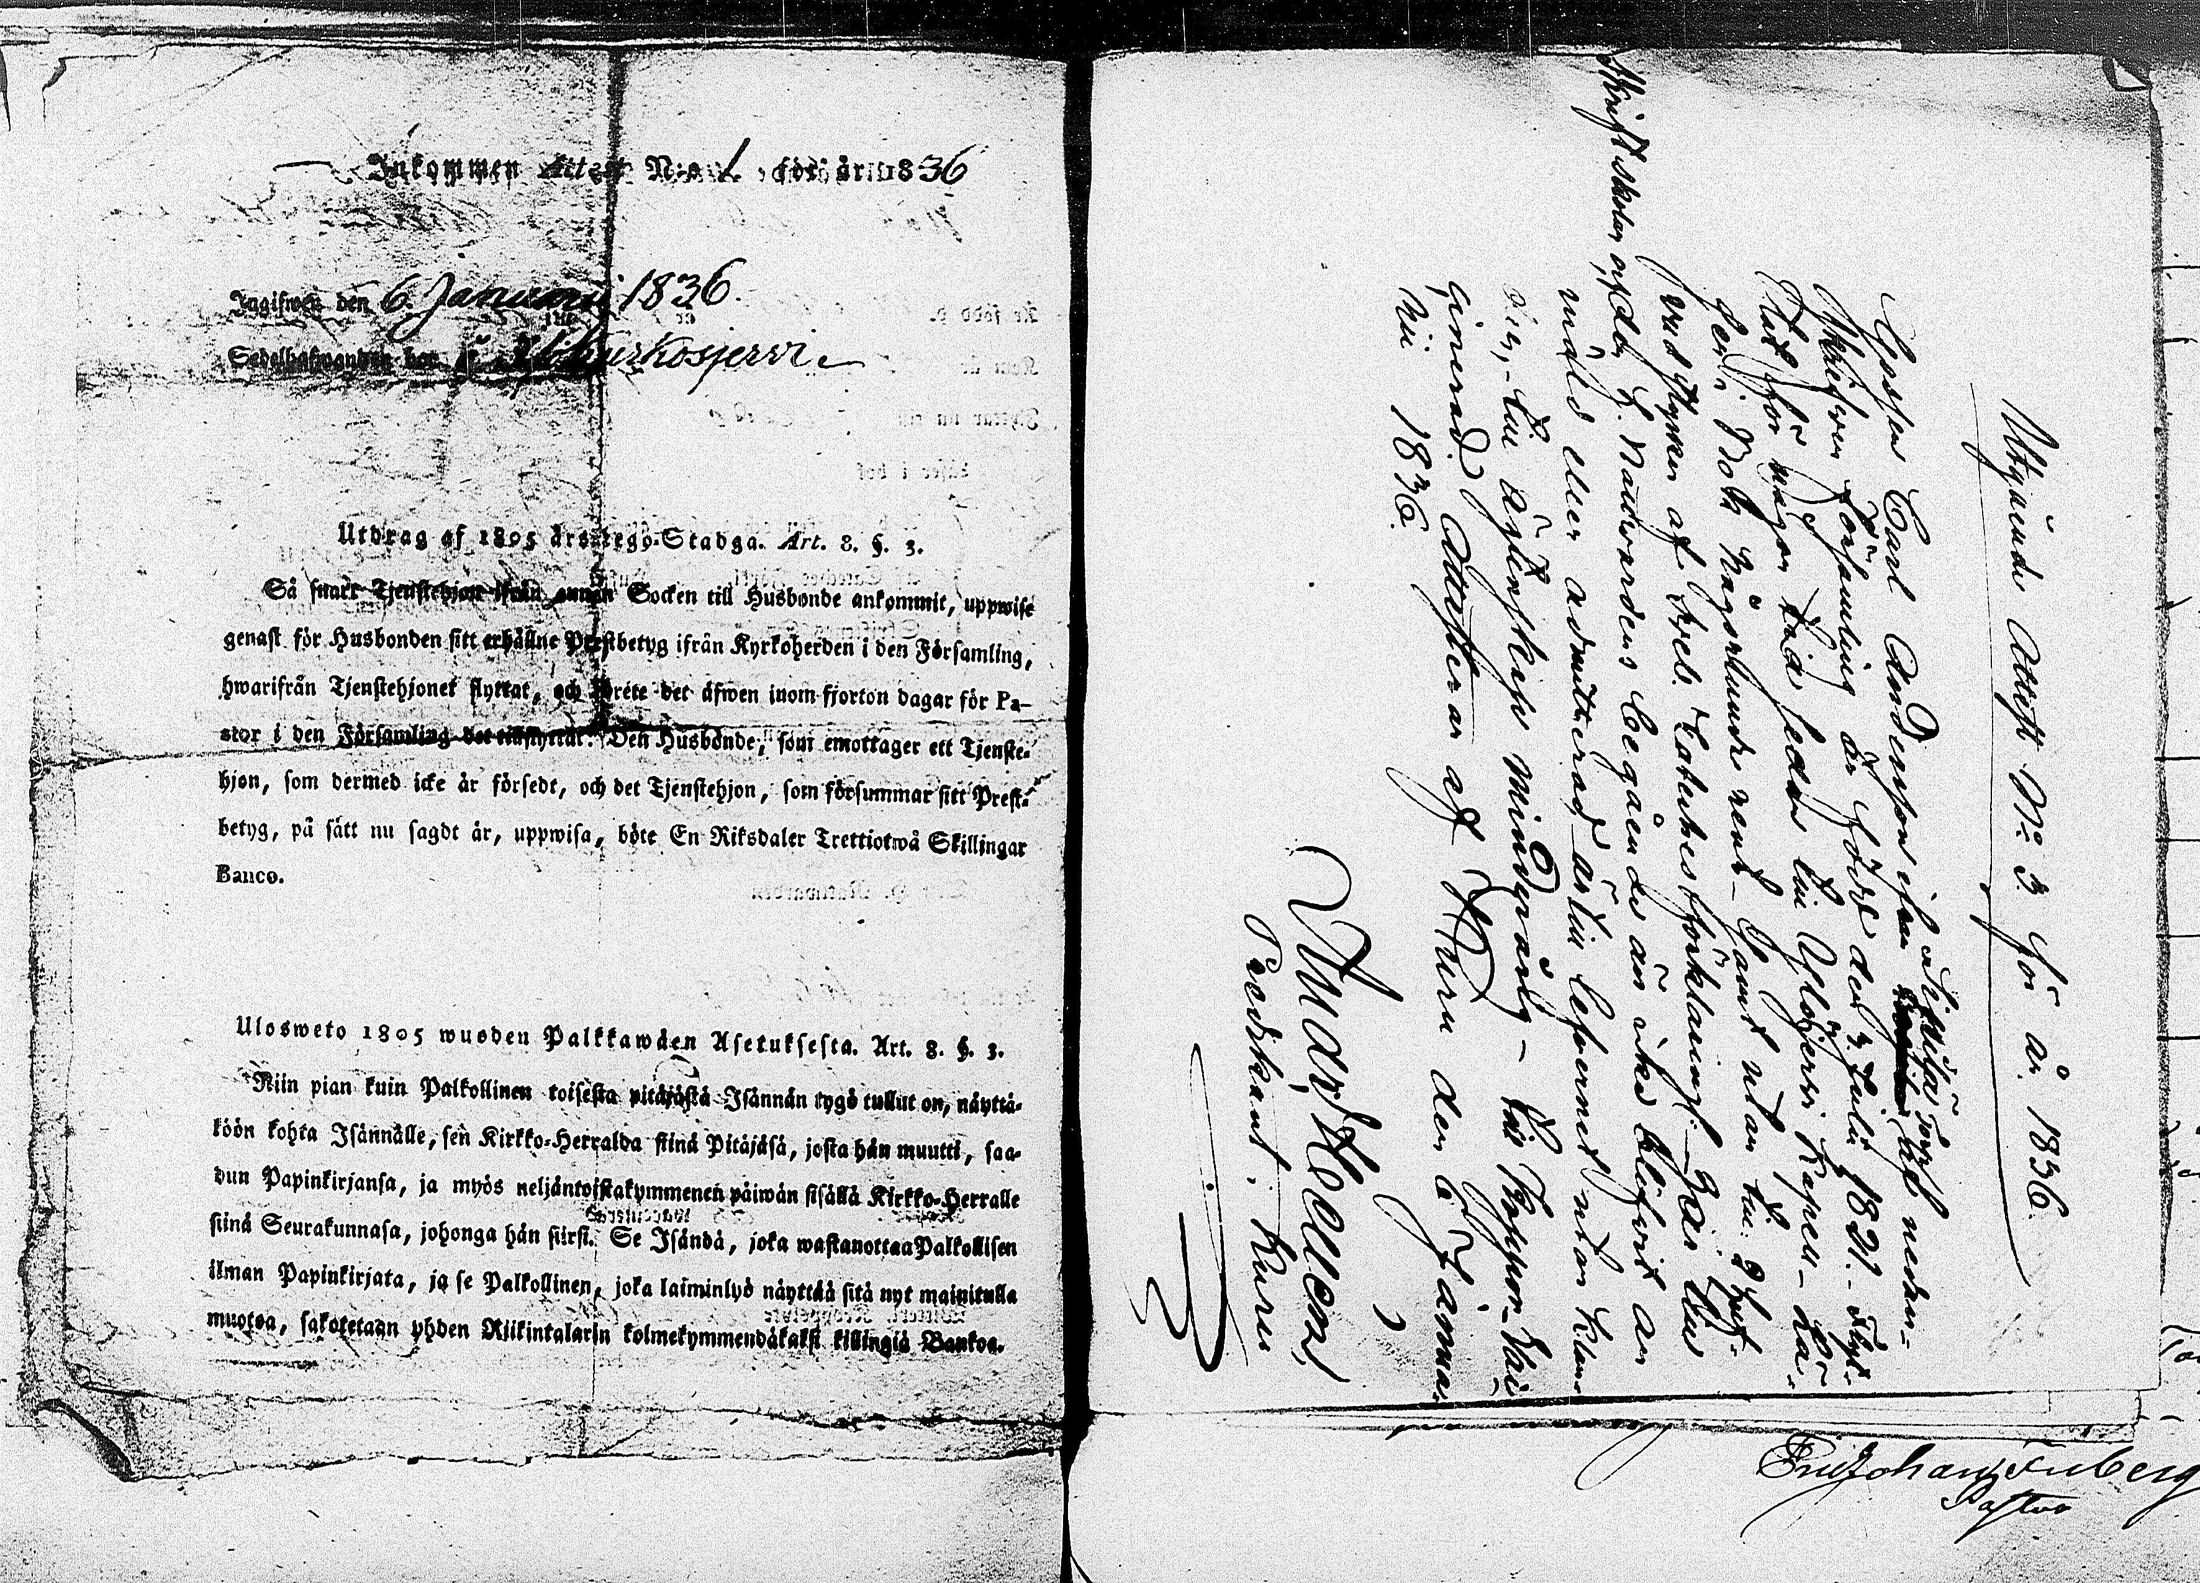 Inkommen Attest N:o 1 för år 1836
Ingifwen den 6 Januarii 1836.
Sedelhafwanden bor i
Utdrag af 1805 års Lego-Stadga. Art. 8. §. 3.
Så snart Tjenstehjon ifrån annan Socken till Husbonde ankommit, uppwise
genast för Husbonden sitt erhållne Prestbetyg ifrån Kyrkoherden i den Församling,
hwarifrån Tjenstehjonet flyttat, och förete det äfwen inom fjorton dagar för Pa-
stor i den Församling det tillflyttat. Den Husbonde, som emottager ett Tjenste-
hjon, som dermed icke är försedt, och det Tjenstehjon, som försummar sitt Prest-
betyg, på sätt nu sagdt är, uppwisa, böte En Riksdaler Trettiotwå Skillingar
Banco.
Ulosweto 1805 wuoden Palkkawäen Asetuksesta. Art. 8. §. 3.
Niin pian kuin Palkollinen toisesta pitäjästä Isännän tygö tullut on, näyttä-
köön kohta Isännälle, sen Kirkko-Herralda siinä Pitäjäsä, josta hän muutti, saa-
dun Papinkirjansa, ja myös neljäntoistakymmenen päiwän sisällä Kirkko-Herralle
siinä Seurakunnasa, johonga hän siirsi. Se Isändä, joka wastanottaa Palkollisen
ilman Papinkirjata, ja se Palkollinen, joka laiminlyö näyttää sitä nyt mainitulla
muotoa, sakotetaan yhden Riikintalarin kolmekymmendäkaksi killingiä Bankoa.
Utgäende Attest N:o 3 för år 1836.
Gossen Carl Andersson ifrån Torp uti nedan-
skrefven Församling är född den 3 Julii 1821. - Flyt-
tad för någon tid sedan till Ylöjervi Kapell - Lä-
ser i Bok någorlunda rent samt utan till 2 huf-
vudstycken af Cateches förklaring - Har
Skriftskolan, af den H. Nattvardens begående än icke blifvit an
mäld eller admitterad - är till lefvernet utan klan-
der, - till ägtenskap mindyrårig -
ginerad. Attesterar af Kuru den 5 Janua-
rii 1836.
Predikant i Kuru
Pastor